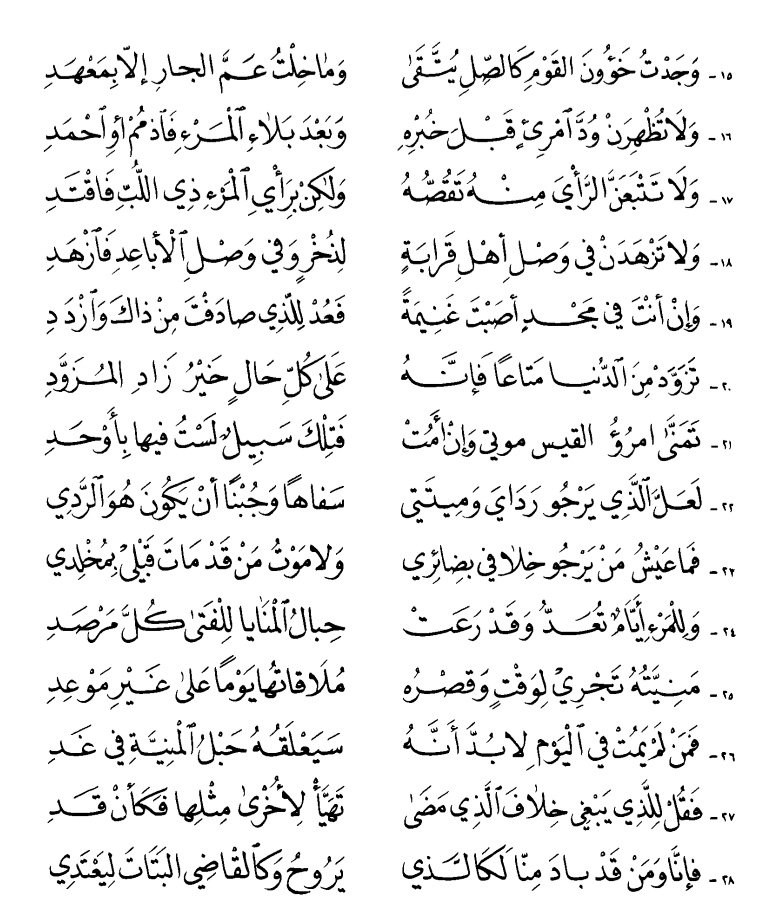 ١٥ - وَجَدْتُ خَؤُونَ القَوْمِ كَالصِّلِ يُتَّقَىٰ وَمَا خِلْتُ عَمَّ الجارِ إلاّ بِمَعْهَدِ
١٦ - وَلَا تُظْهِرَنْ وُدَّ ٱمْرِئٍ قَبْلَ خُبْرِهِ وَبَعْدَ بَلاءِ ٱلْمَرْءِ فَٱذْمُمْ أوِ ٱحْمَدِ
١٧ - وَلَا تَتْبَعَنَّ الرَّأْيَ مِنْهُ تَقُصُّهُ وَلَكِنْ بِرَأْيِ ٱلْمَرْءِ ذِي اللُّبِّ فَاقْتَدِ
١٨ - وَلا تَزْهَدَنْ في وَصْلِ أهْلِ قَرابَةٍ لِذُخْرٍ وَفي وَصْلِ ٱلْأباعِدِ فَٱزْهَدِ
١٩ - وَإنْ أنْتَ في مَجْدٍ أصَبْتَ غَنِيمَةً فَعُدْ لِلَّذِي صادَفْتَ مِنْ ذاكَ وَٱزْدَدِ
٢٠ - تَزَوَّدْ مِنَ ٱلدُّنيا مَتاعًا فَإنَّهُ عَلَىٰ كُلِّ حَالٍ خَيْرُ زَادِ المُزَوَّدِ
٢١ - تَمَنَّىٰ امرُؤُ القيس موتي وَإنْ أَمُتْ فَتِلْكَ سَبِيلٌ لَسْتُ فيها بِأَوْحَدِ
٢٢ - لَعَلَّ ٱلَّذِي يَرْجُو رَدَايَ وَمِيتَتِي سَفاهًا وَجُبْنًا أنْ يَكُونَ هُوَ ٱلرَّدِي
٢٣ - فَمَا عَيْشُ مَنْ يَرْجُو خِلافي بِضائِرِي وَلا مَوْتُ مَنْ قَدْ مَاتَ قَبْلِي بِمُخْلِدِي
٢٤ - وَلِلْمَرْءِ أيَّامٌ تُعَدُّ وَقَدْ رَعَتْ حِبالُ ٱلْمَنَايا لِلْفَتَىٰ كُلَّ مَرْصَدِ
٢٥ - مَنِيَّتُهُ تَجْرِي لِوَقْتٍ وَقَصْرُهُ مُلَاقاتُها يَوْمًا عَلىٰ غَيْرِ مَوْعِدِ
٢٦ - فَمَنْ لَمْ يَمُتْ في ٱلْيَوْمِ لا بُدَّ أَنَّهُ سَيَعْلَقُهُ حَبْلُ ٱلْمَنِيَّةِ في غَدِ
٢٧ - فَقُلْ لِلَّذِي يَبْغِي خِلافَ ٱلَّذِي مَضَىٰ تَهَيَّأْ لِأُخْرَىٰ مِثْلِها فَكَأَنْ قَدِ
٢٨ - فإنَّا وَمَنْ قَدْ بادَ مِنّا لَكالَّذي يَرُوحُ وَكَٱلقَاضِي البَتَاتَ لِيَغْتَدِي